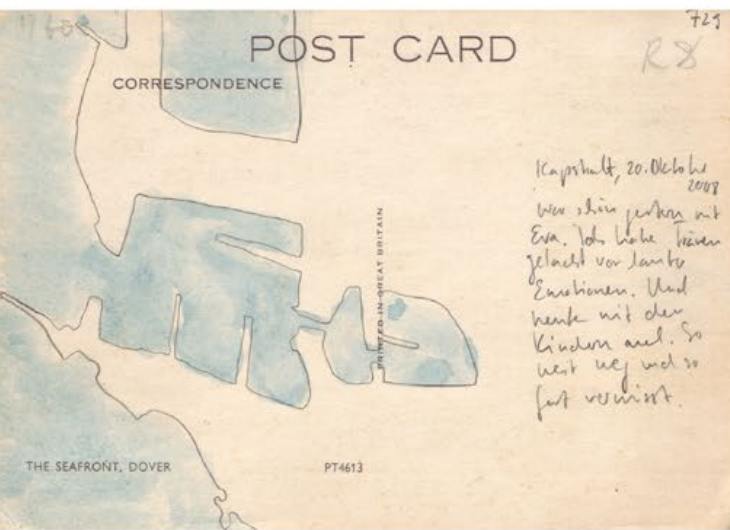 729
POST CARD
R8
CORRESPONDENCE
PRINTED IN GREAT BRITAIN
Kapstadt, 20. Oktober
2008
War schön gestern mit
Eva. Ich habe Tränen
gelacht vor lauter
Emotionen. Und
heute mit den
Kindern auch. So
weit weg und so
fest vermisst.
THE SEAFRONT, DOVER
PT4613